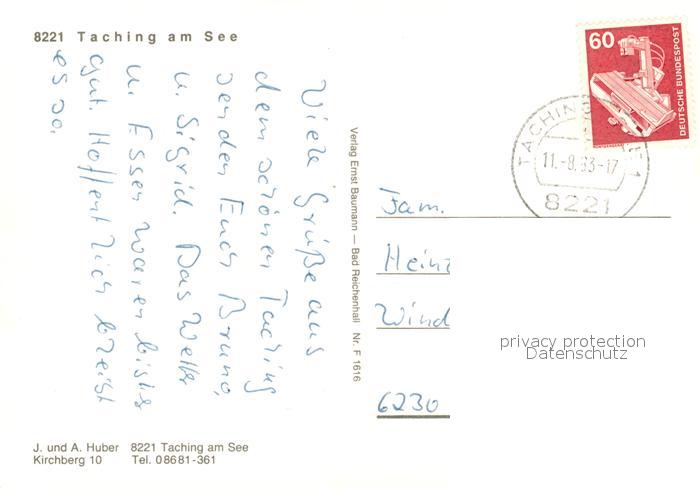 8221 Taching am See
Viele Grüße aus
dem schönen Taching
senden Euch Bruno,
u. Sigrid. Das Wetter
u. Essen waren bisher
gut. Hoffentlich bleibt
es so.
J. und A. Huber 8221 Taching am See
Kirchberg 10 Tel. 08681-361
Verlag Ernst Baumann — Bad Reichenhall Nr. F 1616
60
DEUTSCHE BUNDESPOST
TACHING
11.-8.83-17
8221
Fam.
Heinz
Wind
6230
privacy protection
Datenschutz